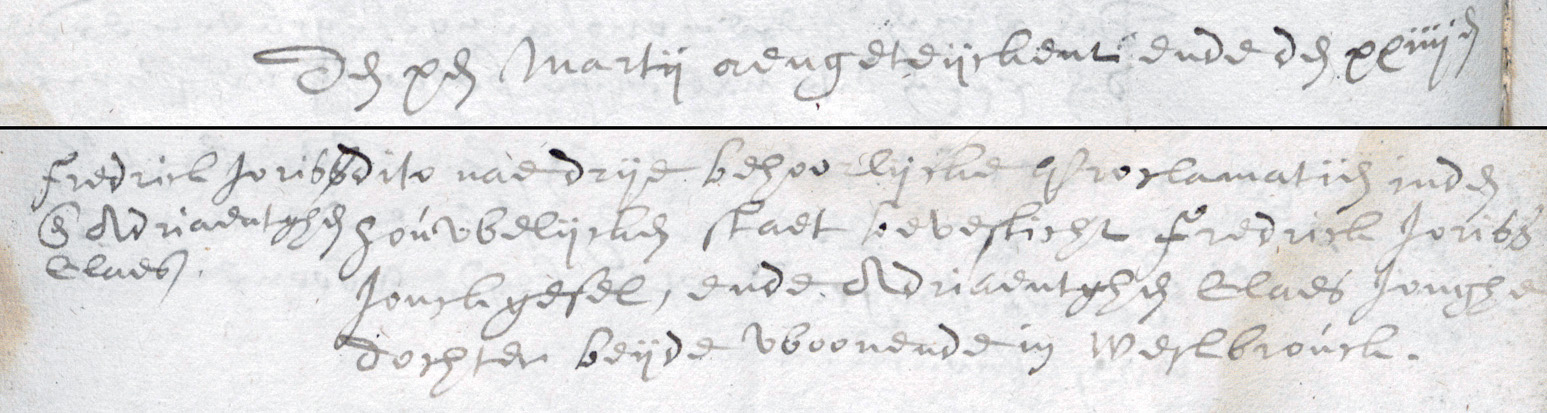 Den xen Martij aengeteijckent ende den xxiiijen
Fredrick Joriss
en Adriaentghen
Claes.
dito nae drije behoorlijcke Proclamatien inden
houwbelijcken staet bevesticht Fredrick Joriss
Jonckgesel, ende Adriaentghen Claes Jonghe
dochter beijde woonende in Westbrouck.